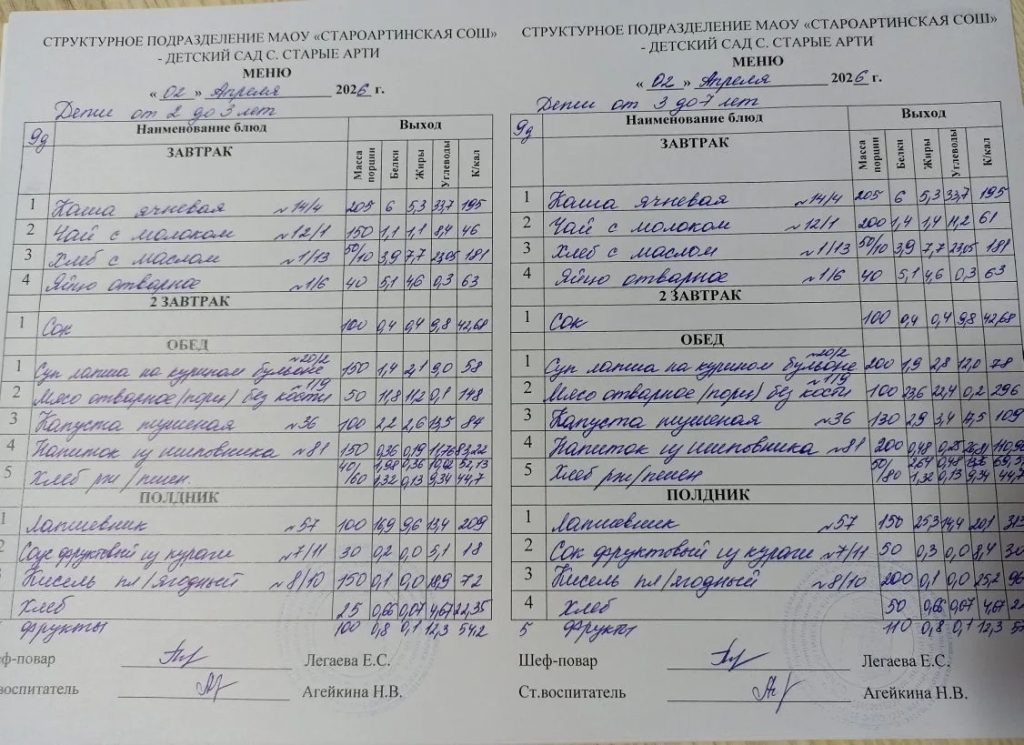 СТРУКТУРНОЕ ПОДРАЗДЕЛЕНИЕ МАОУ «СТАРОАРТИНСКАЯ СОШ»
- ДЕТСКИЙ САД С. СТАРЫЕ АРТИ
МЕНЮ
« 02 » Апреля 2026 г.
Дети от 2 до 3 лет
9д Наименование блюд Выход
ЗАВТРАК Масса порции Белки Жиры Углеводы К/кал
1 Каша ячневая №14/4 205 6 5,3 33,7 195
2 Чай с молоком №12/1 150 1,1 1,1 8,4 46
3 Хлеб с маслом №1/13 50/10 3,9 7,7 23,05 181
4 Яйцо отварное №1/6 40 5,1 4,6 0,3 63
2 ЗАВТРАК
1 Сок 100 0,4 0,4 9,8 42,68
ОБЕД
1 Суп лапша на курином бульоне №20/2 150 1,4 2,1 9,0 58
2 Мясо отварное/порц/ без кости №1/9 50 11,8 11,2 0,1 148
3 Капуста тушеная №36 100 2,2 2,6 13,5 84
4 Напиток из шиповника №81 150 0,36 0,19 83,22
5 Хлеб рж/пшен. 40/60 1,98 0,36 10,02 52,13
1,32 0,13 9,34 44,7
ПОЛДНИК
1 Лапшевник №57 100 16,9 9,6 13,4 209
2 Соус фруктовый из кураги №7/11 30 0,2 0,0 5,1 18
Кисель пл/ягодный №8/10 150 0,1 0,0 18,9 72
Хлеб 25 0,66 0,07 4,67 22,35
фрукты 100 0,8 0,1 12,3 54,2
еф-повар Легаева Е.С.
воспитатель Агейкина Н.В.
СТРУКТУРНОЕ ПОДРАЗДЕЛЕНИЕ МАОУ «СТАРОАРТИНСКАЯ СОШ»
- ДЕТСКИЙ САД С. СТАРЫЕ АРТИ
МЕНЮ
« 02 » Апреля 2026 г.
Дети от 3 до 7 лет
9д Наименование блюд Выход
ЗАВТРАК Масса порции Белки Жиры Углеводы К/кал
1 Каша ячневая №14/4 205 6 5,3 33,7 195
2 Чай с молоком №12/1 200 1,4 1,4 11,2 61
3 Хлеб с маслом №1/13 50/10 3,9 7,7 23,05 181
4 Яйцо отварное №1/6 40 5,1 4,6 0,3 63
2 ЗАВТРАК
1 Сок 100 0,4 0,4 9,8 42,68
ОБЕД
1 Суп лапша на курином бульоне №20/2 200 1,9 2,8 12,0 78
2 Мясо отварное/порц/ без кости №1/9 100 23,6 22,4 0,2 296
3 Капуста тушеная №36 130 2,9 3,4 17,5 109
4 Напиток из шиповника №81 200 0,48 0,25 110,96
5 Хлеб рж/пшен 50/80 2,64 0,48
1,32 0,13 9,34 44,7
ПОЛДНИК
1 Лапшевник №57 150 25,3 14,4 20,1
2 Сок фруктовый из кураги №7/11 50 0,3 0,0 8,4 30
3 Кисель пл/ягодный №8/10 200 0,1 0,0 25,2 96
4 Хлеб 50 0,66 0,07 4,67
5 фрукты 110 0,8 0,1 12,3
Шеф-повар Легаева Е.С.
Ст.воспитатель Агейкина Н.В.